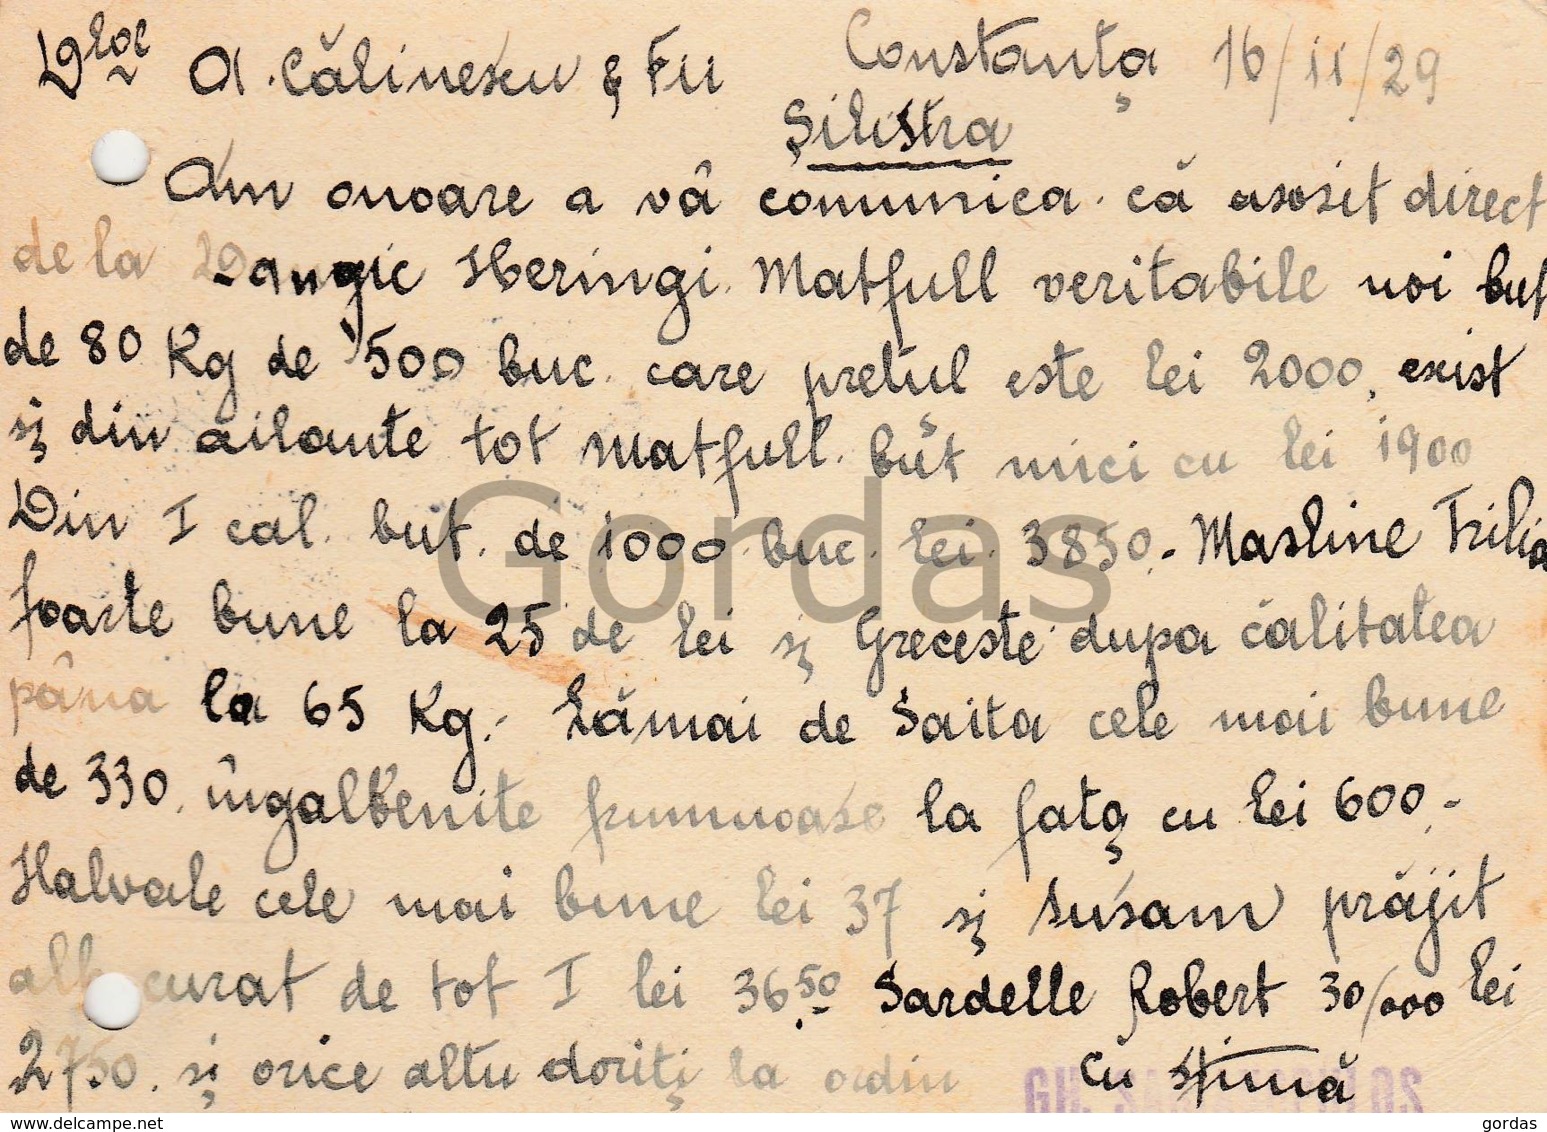 Dlor A. Călinescu & Fii Constanța 16/11/29
Silistra
Am onoare a vâ comunica. că asosit direct
de la Heringi. Matfull veritabile noi but
de 80 Kg de 500 buc. care pretul este lei 2000, exist
și din ailante tot Matfull. but mici cu lei 1900
Din I cal. but. de 1000 buc. lei. 3850.- Masline Trilia
foarte bune la 25 de lei și Greceste dupa călitatea
pâna la 65 Kg.- Lămai de Saita cele mai bune
de 330, îngalbenite frumoase la fața cu lei 600.-
Halvale cele mai bune lei 37 și susam prăjit
alb curat de tot I lei 36.50 Sardelle Robert 30/000 lei
2750. și orice altu doriți la ordin cu stimă
GH.
Gordas
www.delcampe.net gordas